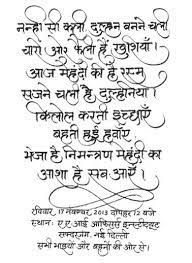 नन्ही सी कली दुल्हन बनने चली
चारों ओर फैली हैं खुशियाँ।
आज मेहंदी की है रस्म
सजने चली है दुल्हनियाँ।
किलोल करती इच्छाएँ
बहती हुई हवाएँ
भेजा है, निमन्त्रण मेहंदी का
आशा है सब आएँ।
रविवार, 17 नवम्बर, 2013 दोपहर 12 बजे
स्थानः ए.आई आफिसर्स इन्स्टीट्यूट
सफदरजंग, नई दिल्ली
सभी भाइयों और बहनों की ओर से।